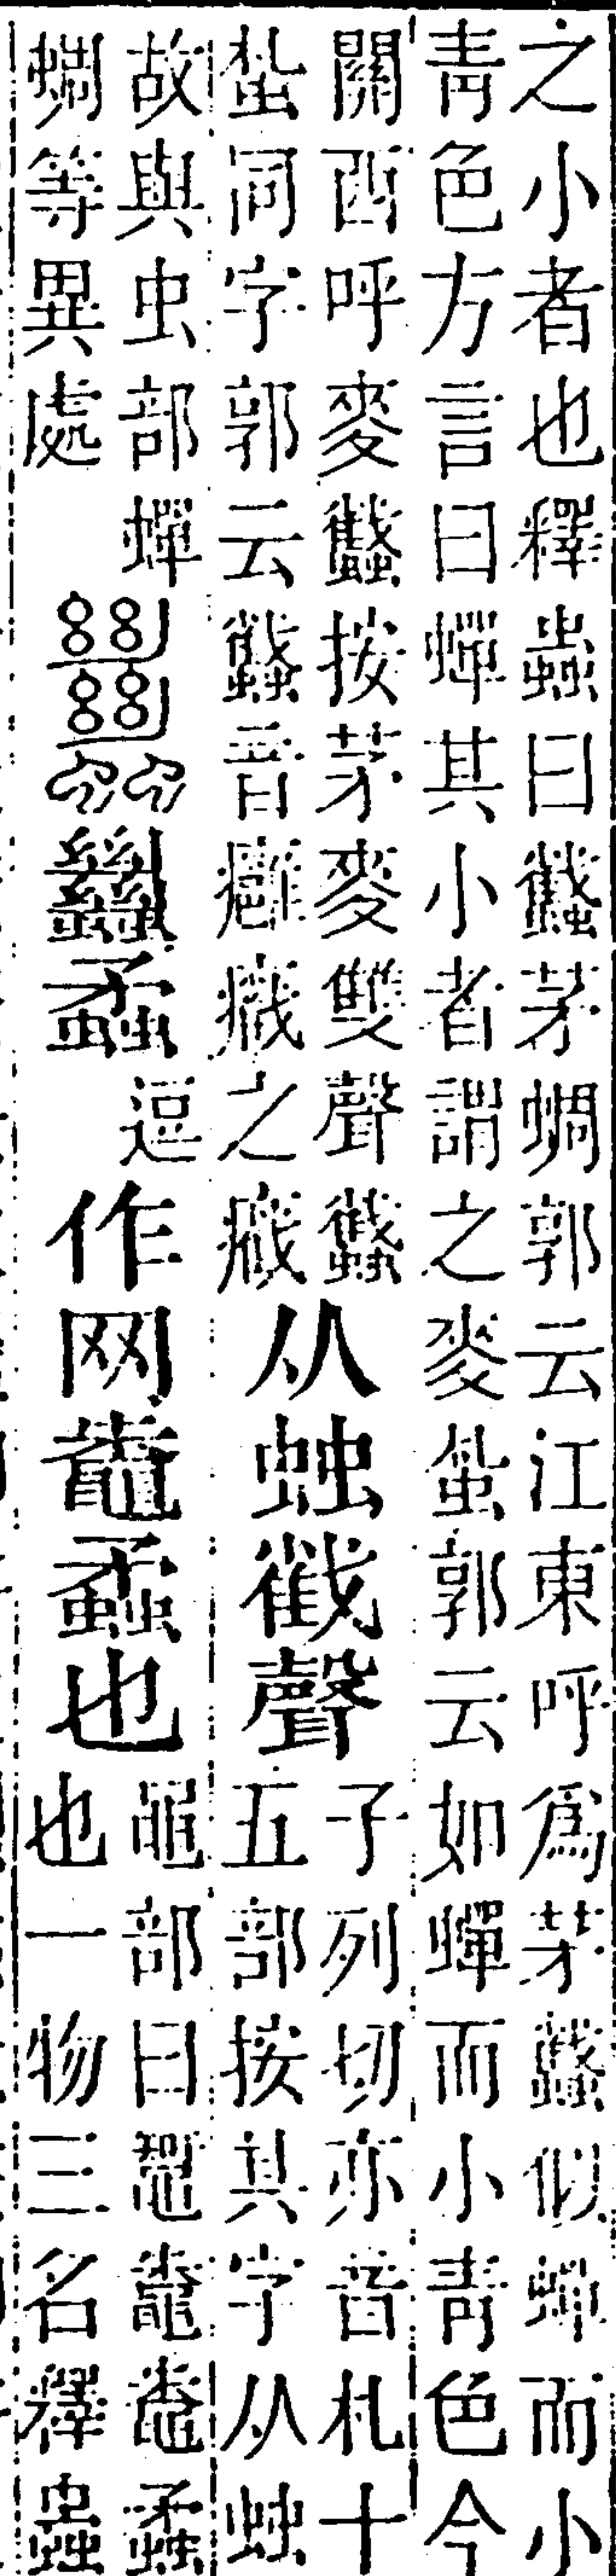 之小者也釋蟲曰蠽茅蜩郭云江東呼爲茅蠽似蟬而小
青色方言曰蟬其小者謂之麥蚻郭云如蟬而小青色今
關西呼麥蠽按茅麥雙聲蠽子列切亦音札十
蚻同字郭云蠽音癰癤之癤五部按其字从䖵
从䖵㔾聲
故與虫部蟬
蜩等異處
蠿蟊逗
作网鼄蟊也
黽部曰鼄蟊
也一物三名釋蟲